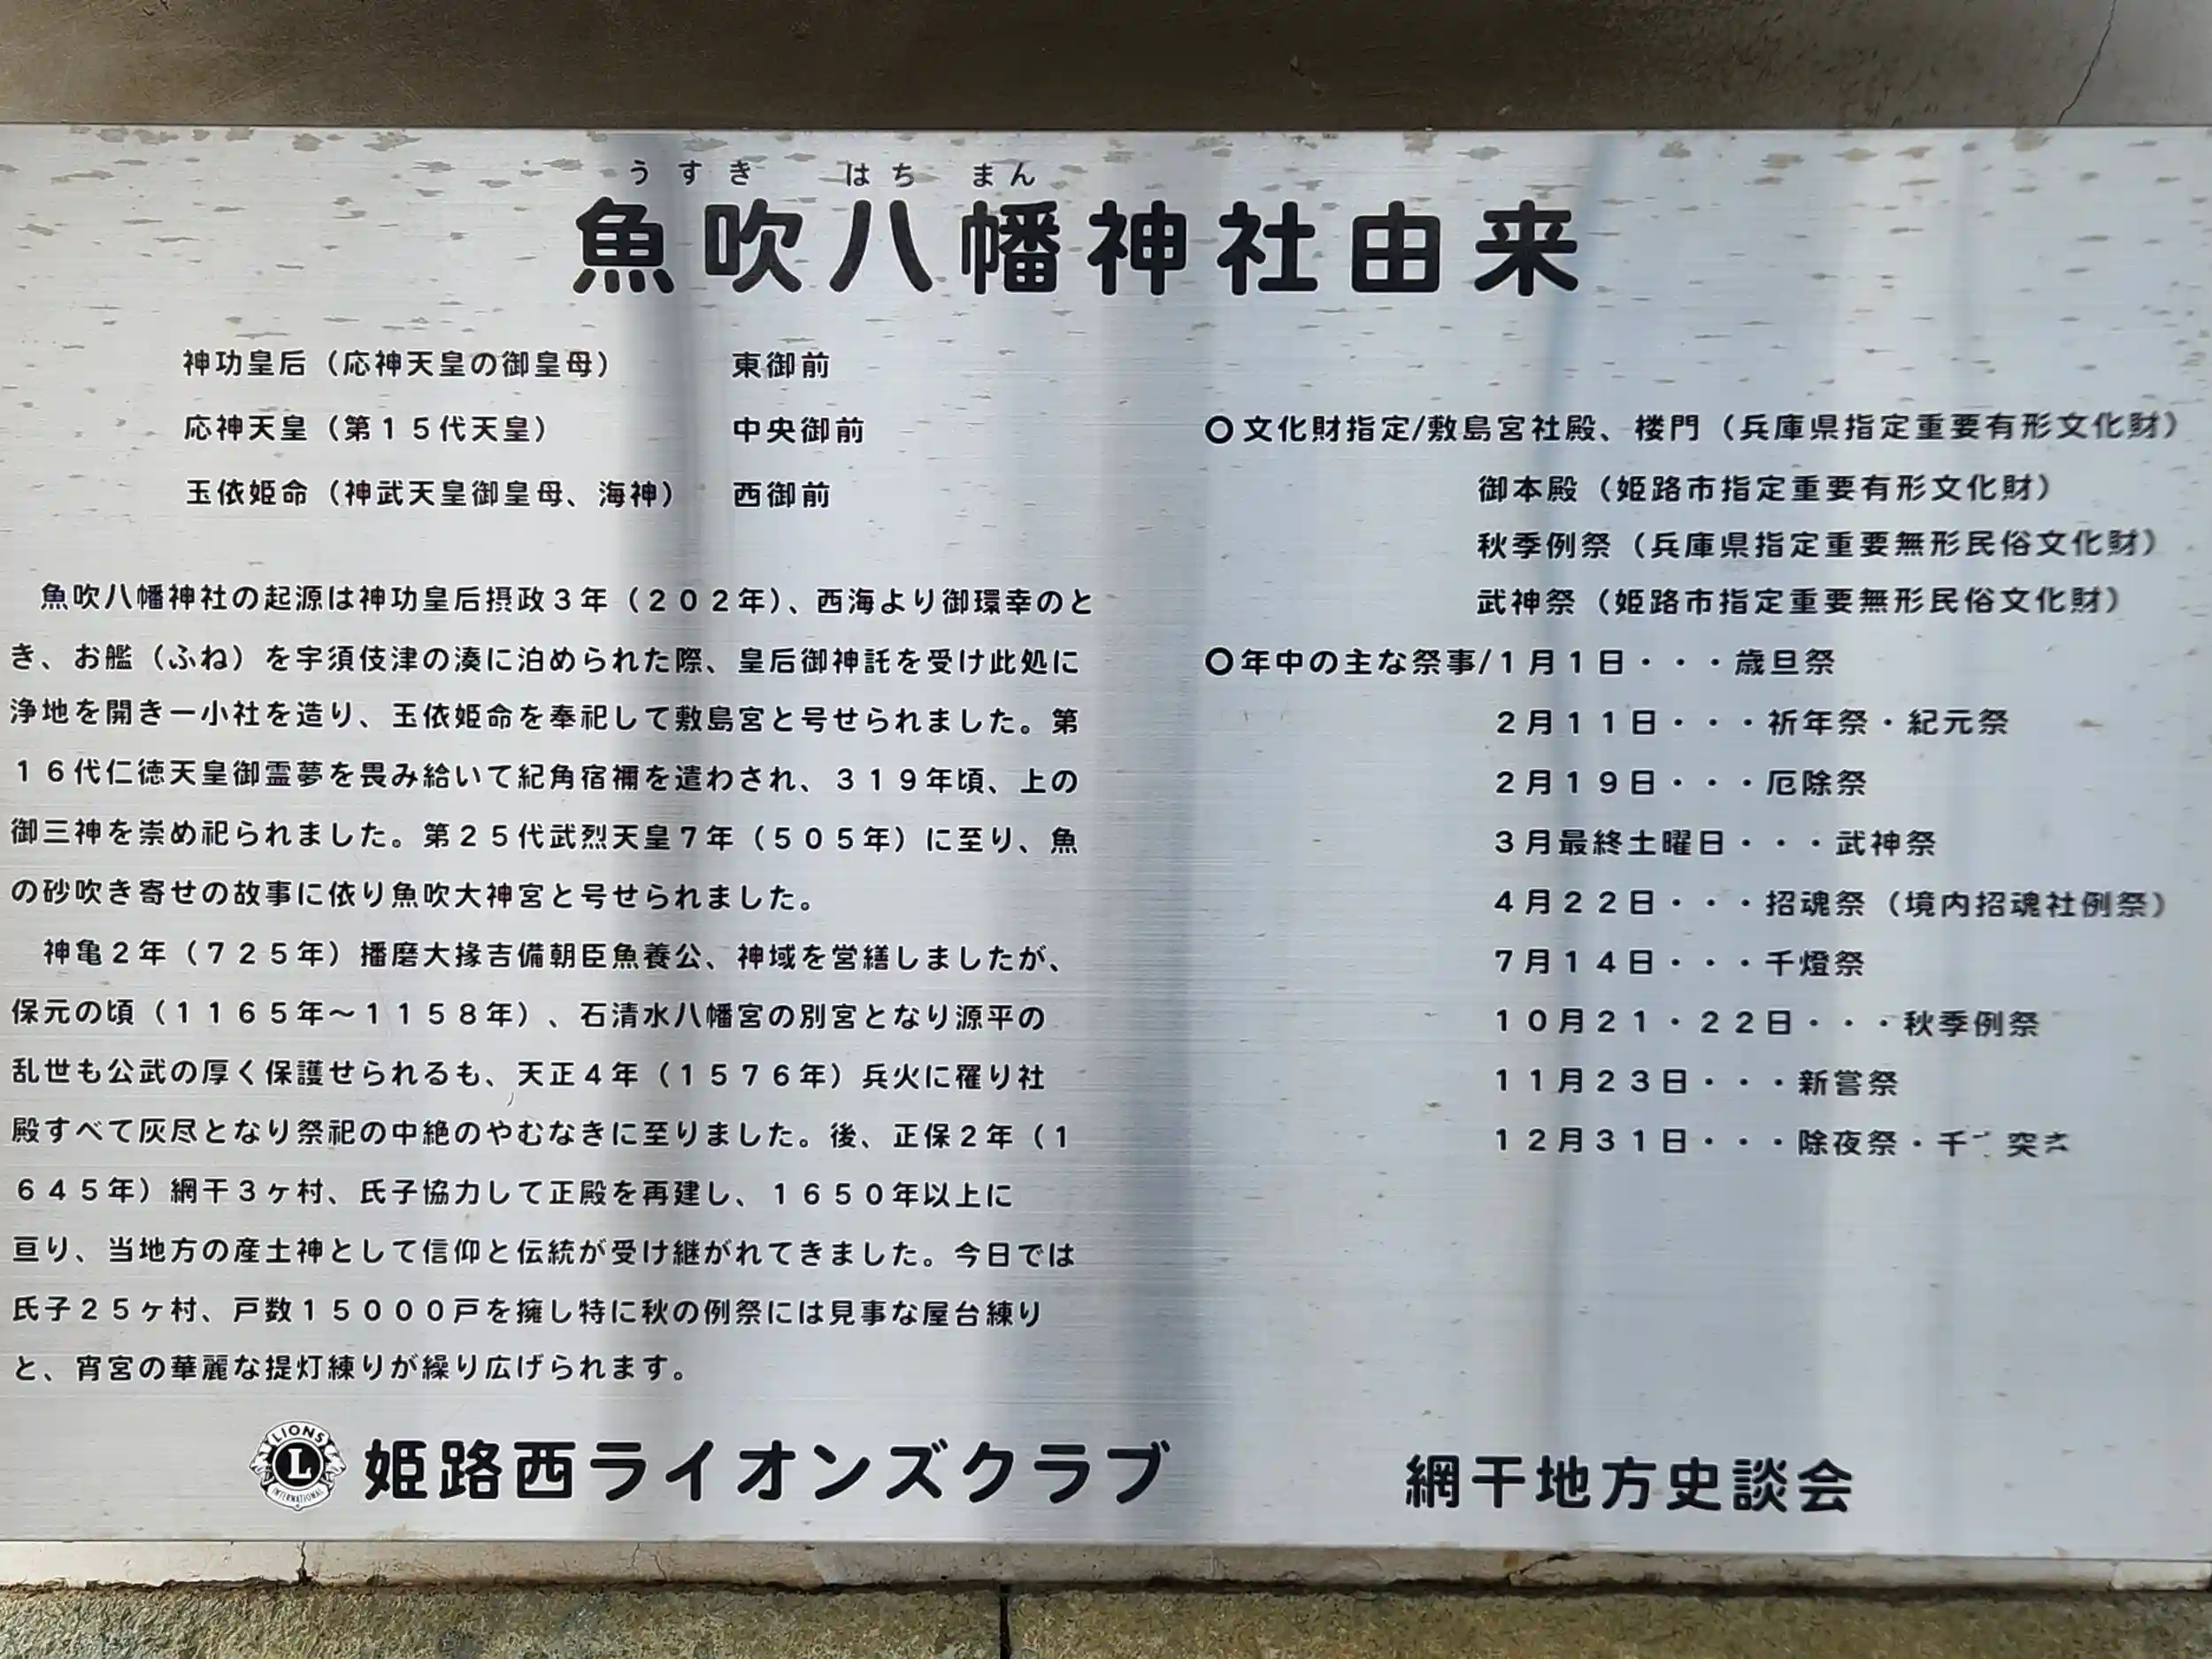 うすき はち まん
魚吹八幡神社由来
神功皇后（応神天皇の御皇母） 東御前
応神天皇（第１５代天皇） 中央御前
玉依姫命（神武天皇御皇母、海神） 西御前
魚吹八幡神社の起源は神功皇后摂政３年（２０２年）、西海より御環幸のと
き、お艦（ふね）を宇須伎津の湊に泊められた際、皇后御神託を受け此処に
浄地を開き一小社を造り、玉依姫命を奉祀して敷島宮と号せられました。第
１６代仁徳天皇御霊夢を畏み給いて紀角宿禰を遣わされ、３１９年頃、上の
御三神を崇め祀られました。第２５代武烈天皇７年（５０５年）に至り、魚
の砂吹き寄せの故事に依り魚吹大神宮と号せられました。
神亀２年（７２５年）播磨大掾吉備朝臣魚養公、神域を営繕しましたが、
保元の頃（１１６５年～１１５８年）、石清水八幡宮の別宮となり源平の
乱世も公武の厚く保護せられるも、天正４年（１５７６年）兵火に罹り社
殿すべて灰尽となり祭祀の中絶のやむなきに至りました。後、正保２年（１
６４５年）網干３ヶ村、氏子協力して正殿を再建し、１６５０年以上に
亘り、当地方の産土神として信仰と伝統が受け継がれてきました。今日では
氏子２５ヶ村、戸数１５０００戸を擁し特に秋の例祭には見事な屋台練り
と、宵宮の華麗な提灯練りが繰り広げられます。
〇文化財指定/敷島宮社殿、楼門（兵庫県指定重要有形文化財）
御本殿（姫路市指定重要有形文化財）
秋季例祭（兵庫県指定重要無形民俗文化財）
武神祭（姫路市指定重要無形民俗文化財）
〇年中の主な祭事/１月１日・・・歳旦祭
２月１１日・・・祈年祭・紀元祭
２月１９日・・・厄除祭
３月最終土曜日・・・武神祭
４月２２日・・・招魂祭（境内招魂社例祭）
７月１４日・・・千燈祭
１０月２１・２２日・・・秋季例祭
１１月２３日・・・新嘗祭
１２月３１日・・・除夜祭・
LIONS
L
INTERNATIONAL
姫路西ライオンズクラブ
網干地方史談会